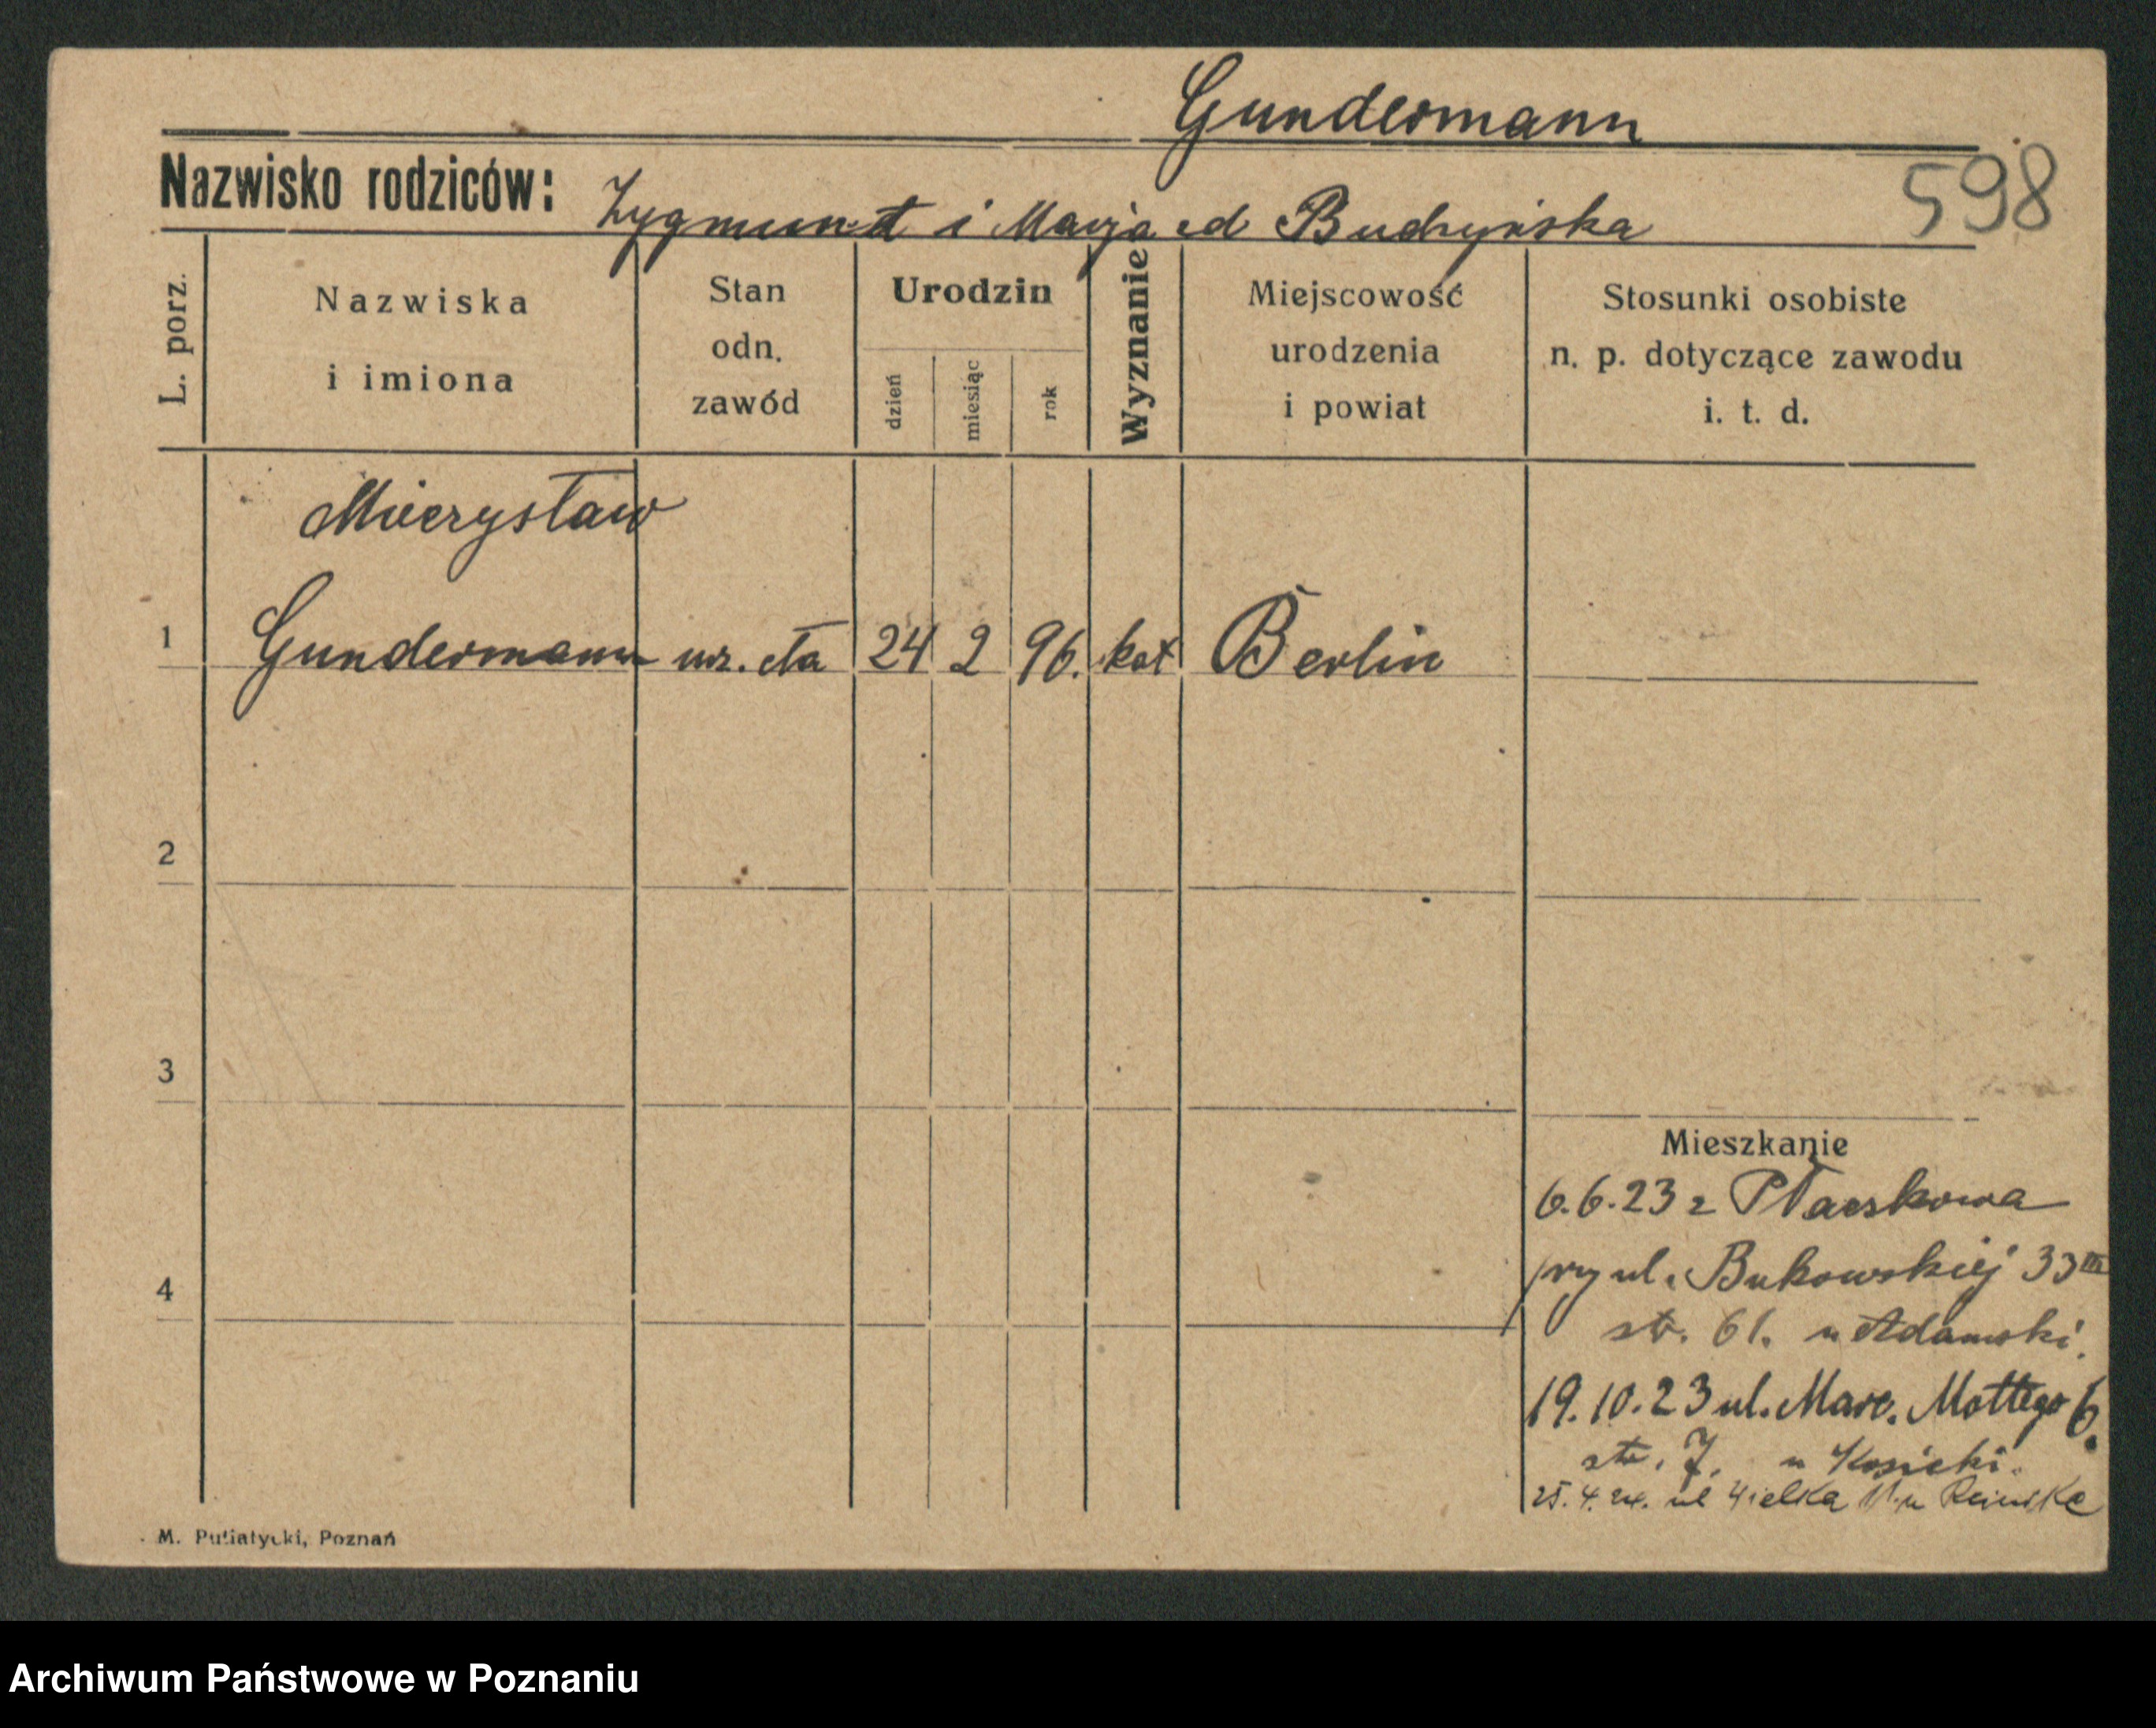 Gundermann
Nazwisko rodziców: Zygmunt i Marja cd Budzyńska
598
L. porz.
Nazwiska i imiona
Stan odn. zawód
Urodzin
dzień
miesiąc
rok
Wyznanie
Miejscowość urodzenia i powiat
Stosunki osobiste n. p. dotyczące zawodu i. t. d.
Mieczysław
1 Gundermann urz. 24 2 96. kat Berlin
2
3
Mieszkanie
6.6.23 z Płaczkowa
4
przy ul. Bukowskiej 33 III
str. 61. u Adamski.
19.10.23 ul. Marc. Mottego 6.
str. 7. u Kosicki.
25.4.24. ul Wielka u
M. Putiatycki, Poznań
Archiwum Państwowe w Poznaniu